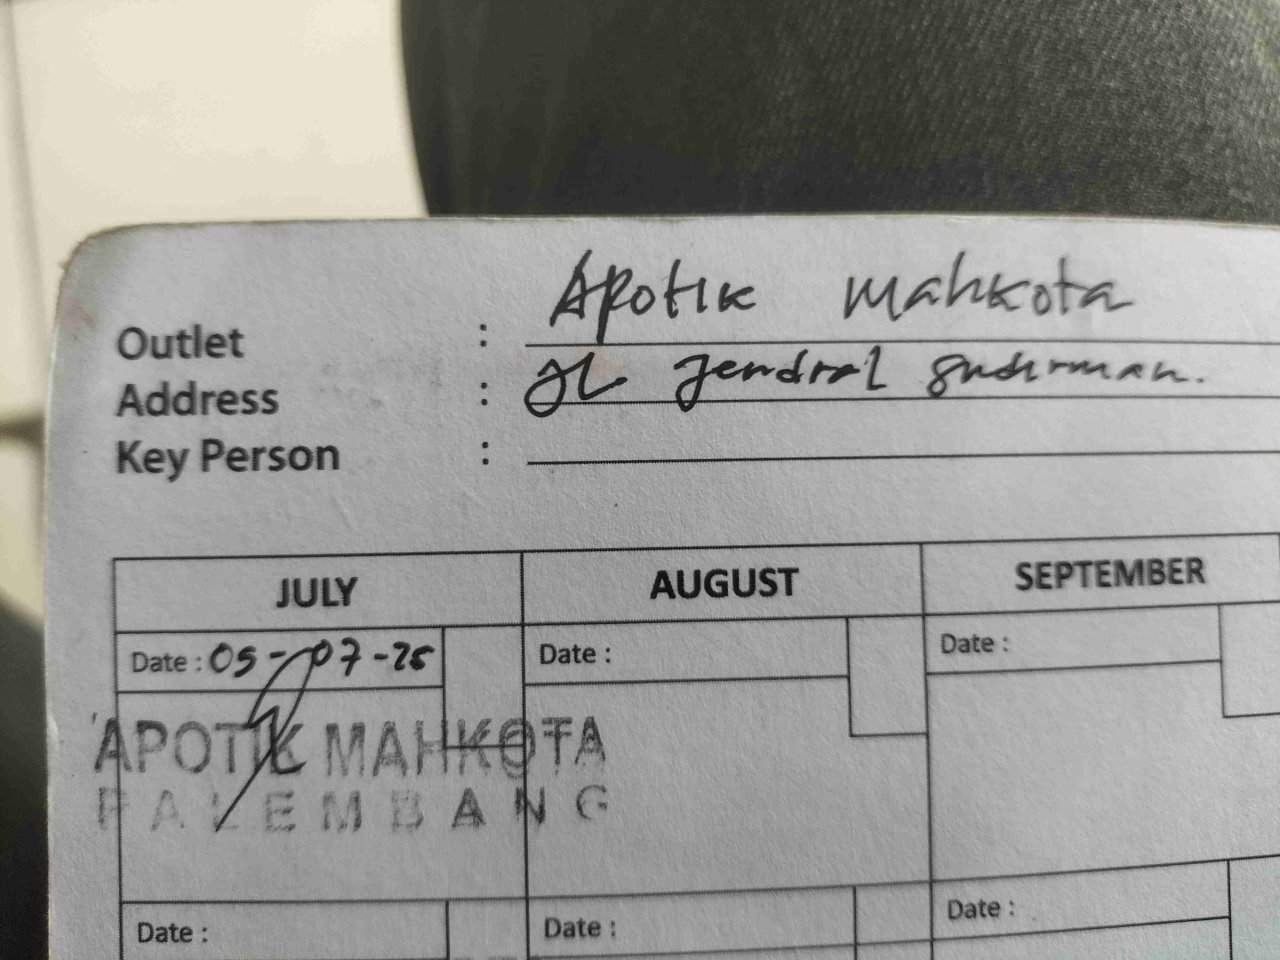 Outlet : Apotik Mahkota
Address : JL Jendral Sudirman.
Key Person :
JULY AUGUST SEPTEMBER
Date : 05-07-25 Date : Date :
APOTIK MAHKOTA
PALEMBANG
Date : Date : Date :